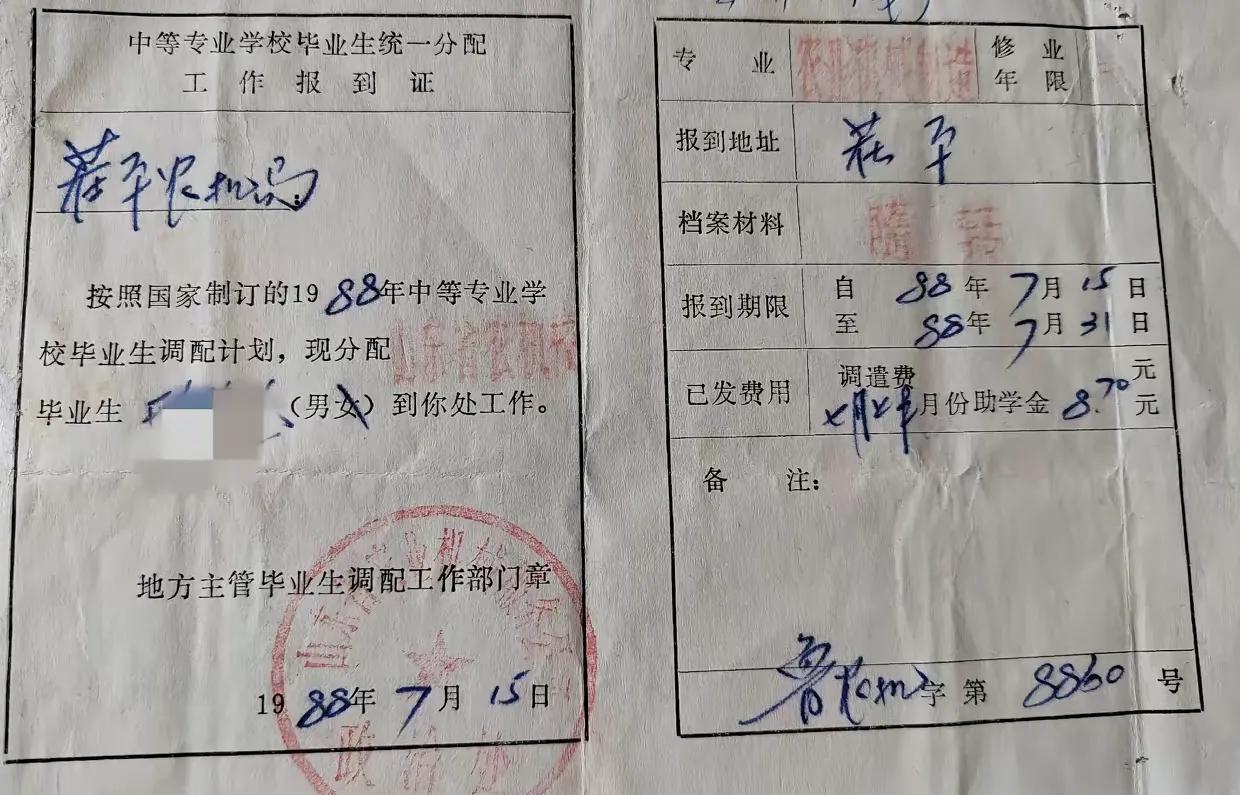 中等专业学校毕业生统一分配
工作报到证
茌平农机局:
按照国家制订的1988年中等专业学
校毕业生调配计划，现分配
毕业生（男女）到你处工作。
地方主管毕业生调配工作部门章
1988年7月15日
专业
修业年限
报到地址 茌平
档案材料
报到期限 自88年7月15日
至88年7月31日
已发费用 调遣费 元
月份助学金8.70元
备注：
鲁农机字第8860号